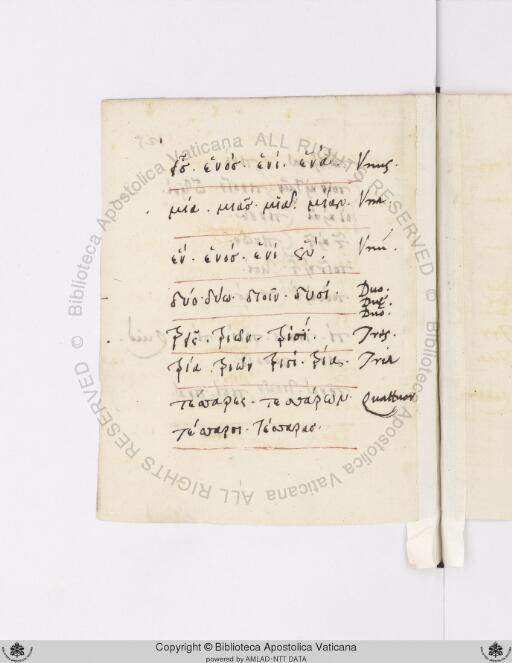 εἷς · ἑνός · ἑνί · ἕνα · Vnus.
μία · μιᾶς · μιᾷ · μίαν · Vna
ἕν · ἑνος · ἑνί · ἕν · Vnū.
δύο · δύω · δυοῖν · δυσί · Duo.
Duę.
Duo.
τρεῖς · τριῶν · τρισί · Tres.
τρία · τριῶν τρισί · τρία · Tria
τέσσαρες · τεσσάρων · Quattuor
τέσσαρσι · τέσσαρας ·
© Biblioteca Apostolica Vaticana ALL RIGHTS RESERVED
Copyright © Biblioteca Apostolica Vaticana
powered by AMLAD-NTT DATA